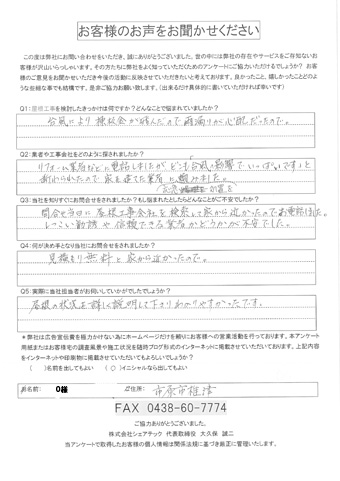 お客様のお声をお聞かせください
この度は弊社にお問い合わせをいただき、誠にありがとうございました。世の中には弊社の存在やサービスをご存知ないお
客様が沢山いらっしゃいます。その方たちに弊社をよく知っていただくためのアンケートにご協力いただけるでしょうか？ お客
様のご意見をお聞かせいただき今後の活動に反映させていただきたいと考えております。良かったこと、嬉しかったことどのよ
うな些細な事でも結構です。是非ご協力お願い致します。（出来るだけ具体的に書いていただければ幸いです）
Q1：屋根工事を検討したきっかけは何ですか？どんなことで悩まれていましたか？
台風により棟板金が飛んだので雨漏りが心配だったので。
Q2：業者や工事会社をどのように探されましたか？
リフォーム業者などに電話しましたがどこも台風の影響でいっぱいですと
断わられたので家を建てた業者に頼みました。
Q3：当社を知りすぐにお問合せをされましたか？もし悩まれたとしたらどんなことがご不安でしたか？
問合せ当日に屋根工事会社を検索して家から近かったのでお電話しました。
しつこい勧誘や信頼できる業者かどうかが不安でした。
Q4：何が決め手となり当社にお問合せをされましたか？
見積もり無料と家から近かったので。
Q5：実際に当社担当者がお伺いしていかがでしたでしょうか？
屋根の状況を詳しく説明して下さりわかりやすかったです。
＊弊社は広告宣伝費を極力かけない為にホームページだけを頼りにお客様への営業活動を行っております。本アンケート
用紙またはお客様宅の調査風景や施工状況を随時ブログ形式のインターネットに掲載させていただいております。上記内容
をインターネットや印刷物に掲載させていただいてもよろしいでしょうか？
（　）名前を出してもよい　（○）イニシャルなら出してもよい
お名前： O様 ご住所： 市原市椎津
FAX 0438-60-7774
ご協力ありがとうございました。
株式会社シェアテック 代表取締役 大久保 誠二
当アンケートで取得したお客様の個人情報は関係法規に基づき厳正に管理いたします。